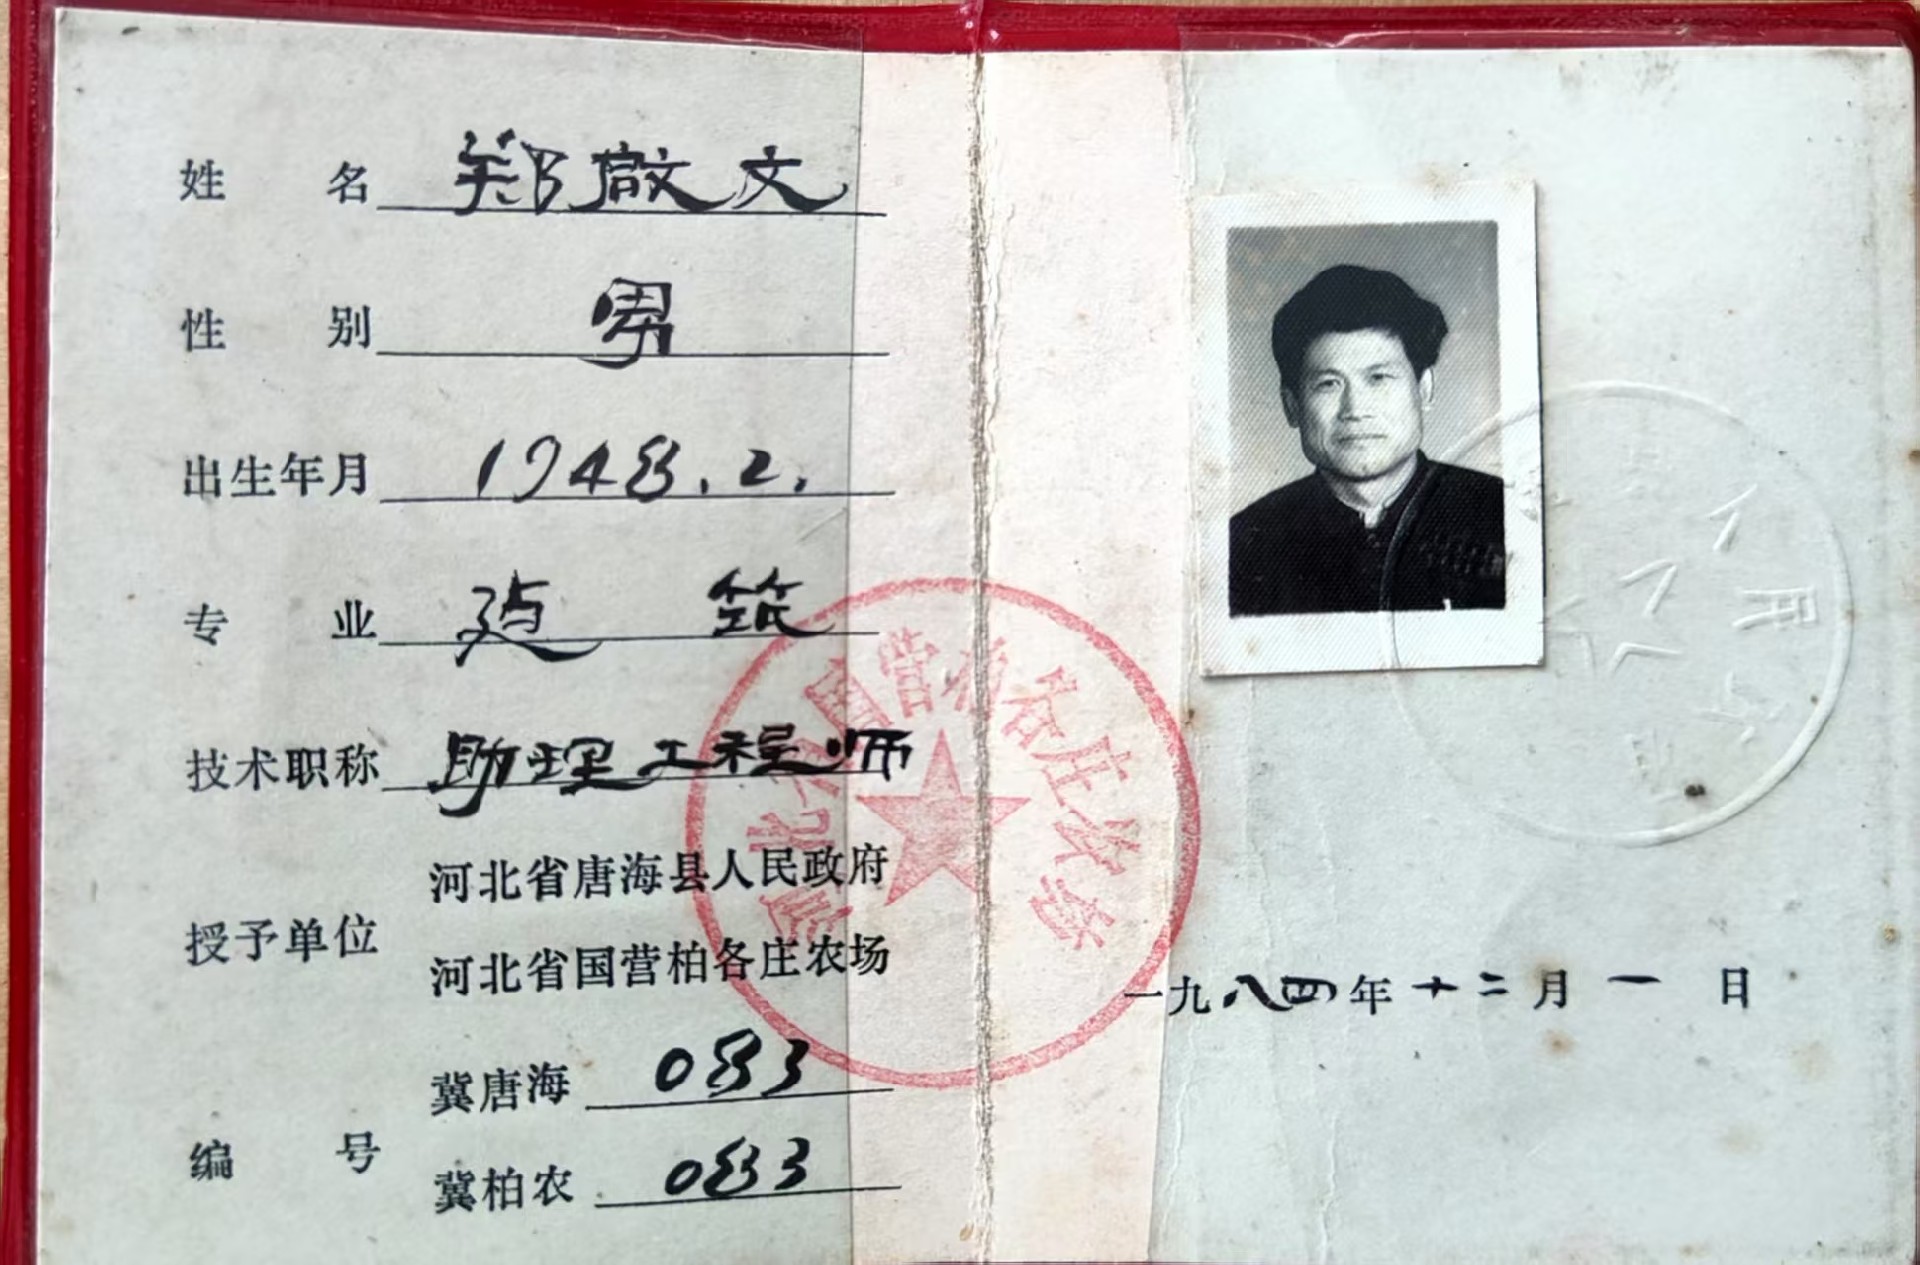 姓名 郑啟文
性别 男
出生年月 1948.2.
专业 建筑
技术职称 助理工程师
授予单位 河北省唐海县人民政府
河北省国营柏各庄农场
编号 冀唐海 083
冀柏农 083
河北省国营柏各庄农场
一九八四年十二月一日